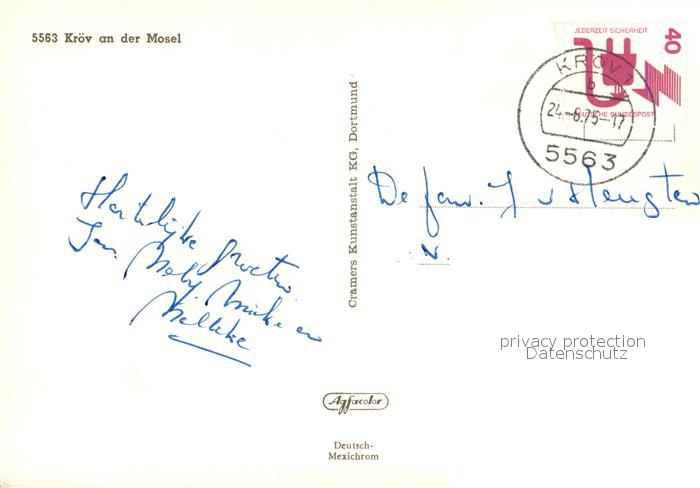 5563 Kröv an der Mosel
JEDERZEIT SICHERHEIT
40
DEUTSCHE BUNDESPOST
KRÖV
b
24.-8.75-17
5563
Cramers Kunstanstalt KG, Dortmund
De fam. J. v Hengsten
N.
Hartelijke Groeten
Jan, en
privacy protection
Datenschutz
Agfacolor
Deutsch-
Mexichrom